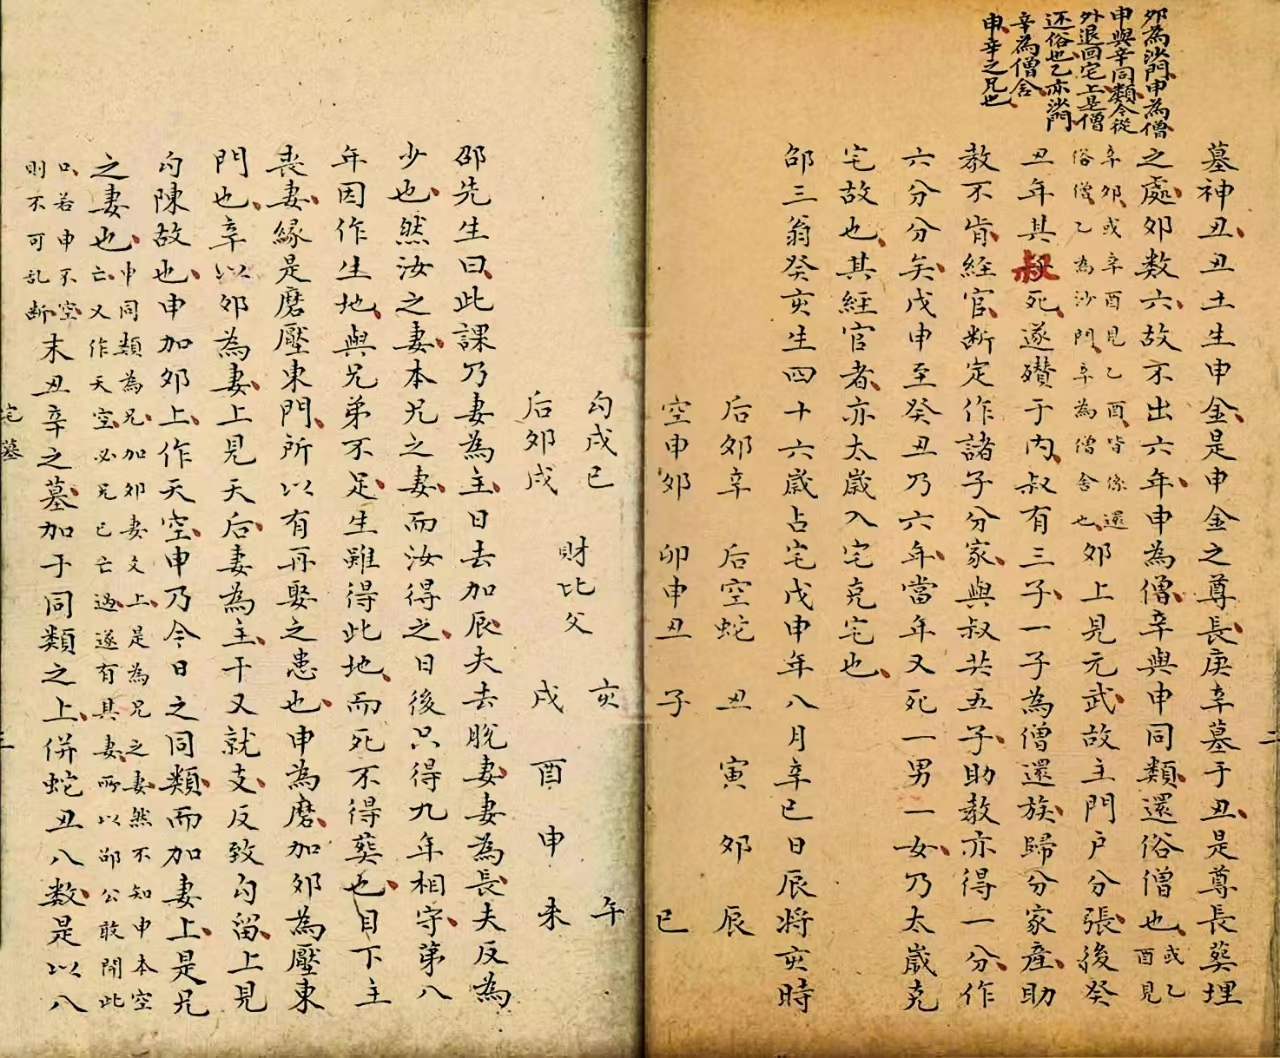 夘為沙門申為僧
申與辛同類今從
外退回宅上是僧
还俗也乙亦沙門
辛為僧舍
申辛之兄也
墓神丑丑土生申金是申金之尊長庚辛墓于丑是尊長葬埋
之處夘数六故不出六年申為僧辛與申同類還俗僧也或乙酉見
辛夘或辛酉見乙酉皆係還俗僧乙為沙門辛為僧舍也夘上見元武故主門戸分張後癸
丑年其叔死遂殯于内叔有三子一子為僧還族歸分家產助
教不肯經官断定作諸子分家與叔共五子助教亦得一分作
六分分矣戊申至癸丑乃六年當年又死一男一女乃太歲克
宅故也其經官者亦太歲入宅克宅也
邵三翁癸亥生四十六歲占宅戊申年八月辛巳日辰将亥時
后夘辛 后空蛇 丑 寅 夘 辰
空申夘 卯申丑 子 巳
勾戌巳 財 亥 午
后夘戌 比父 戌 酉 申 未
邵先生曰此課乃妻為主日去加辰夫去脫妻妻為長夫反為
少也然汝之妻本兄之妻而汝得之日後只得九年相守第八
年因作生地與兄弟不足生雖得此地而死不得葬也目下主
喪妻緣是磨壓東門所以有再娶之患也申為磨加夘為壓東
門也辛以夘為妻上見天后妻為主干又就支反致勾留上見
勾陳故也申加夘上作天空申乃今日之同類而加妻上是兄
之妻也申同類為兄加夘妻文上是為兄之妻然不知申本空
亡又作天空必兄已亡過遂有其妻所以邵公敢開此
口若申不空
則不可乱断末丑辛之墓加于同類之上併蛇丑八数是以八
宅墓